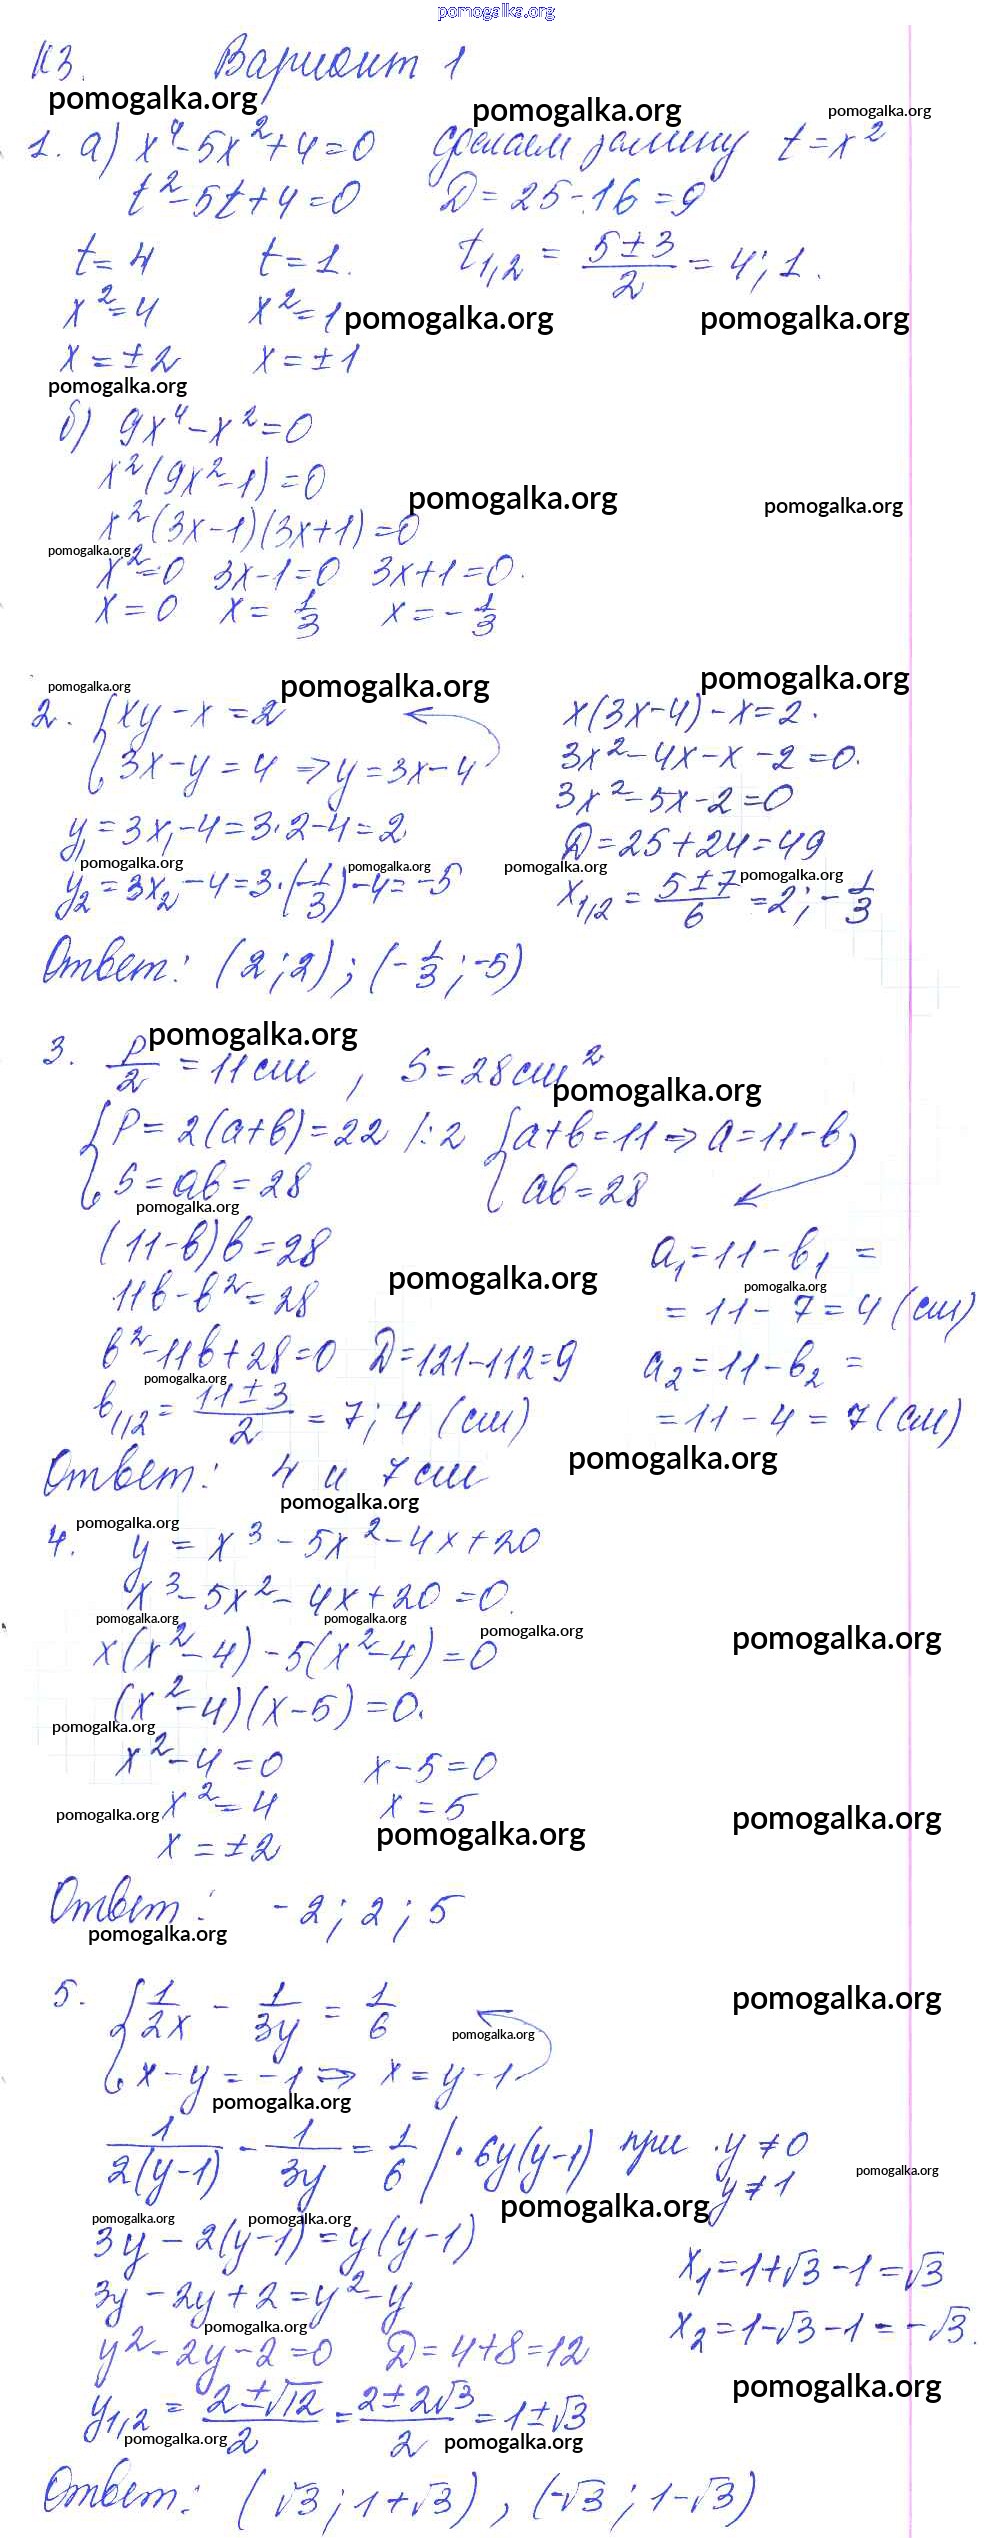 pomogalka.org
К3. Вариант 1
pomogalka.org pomogalka.org pomogalka.org
1. а) x⁴-5x²+4=0 сделаем замену t=x²
t²-5t+4=0 D=25-16=9
t=4 t=1. t₁,₂ = (5±3)/2 = 4; 1.
x²=4 x²=1 pomogalka.org pomogalka.org
x=±2 x=±1
pomogalka.org
б) 9x⁴-x²=0
x²(9x²-1)=0
pomogalka.org pomogalka.org
x²(3x-1)(3x+1)=0
pomogalka.org
x²=0 3x-1=0 3x+1=0.
x=0 x=1/3 x=-1/3
pomogalka.org pomogalka.org pomogalka.org
2. {xy-x=2 x(3x-4)-x=2.
{3x-y=4 ⇒ y=3x-4 3x²-4x-x-2=0.
3x²-5x-2=0
y₁=3x₁-4=3·2-4=2 D=25+24=49
pomogalka.org pomogalka.org pomogalka.org pomogalka.org
y₂=3x₂-4=3·(-1/3)-4=-5 x₁,₂ = (5±7)/6 =2; -1/3
Ответ: (2;2); (-1/3; -5)
pomogalka.org
3. P/2 = 11 см, S=28 см²
pomogalka.org
{P=2(a+b)=22 /:2 {a+b=11 ⇒ a=11-b
{S=ab=28 {ab=28
pomogalka.org
(11-b)b=28 a₁=11-b₁ =
pomogalka.org pomogalka.org
11b-b²=28 = 11-7=4 (см)
b²-11b+28=0 D=121-112=9 a₂=11-b₂ =
pomogalka.org
b₁,₂ = (11±3)/2 = 7; 4 (см) =11-4=7 (см)
pomogalka.org
Ответ: 4 и 7 см
pomogalka.org
pomogalka.org
4. y = x³-5x²-4x+20
x³-5x²-4x+20=0.
pomogalka.org pomogalka.org pomogalka.org pomogalka.org
x(x²-4)-5(x²-4)=0
(x²-4)(x-5)=0.
pomogalka.org
x²-4=0 x-5=0
pomogalka.org x²=4 x=5 pomogalka.org
x=±2 pomogalka.org
Ответ: -2; 2; 5
pomogalka.org
5. {1/2x - 1/3y = 1/6 pomogalka.org
pomogalka.org
{x-y=-1 ⇒ x=y-1
pomogalka.org
1/2(y-1) - 1/3y = 1/6 /·6y(y-1) при y≠0
pomogalka.org
y≠1
pomogalka.org
pomogalka.org pomogalka.org
3y-2(y-1)=y(y-1)
x₁=1+√3-1=√3
3y-2y+2=y²-y
pomogalka.org x₂=1-√3-1=-√3.
y²-2y-2=0 D=4+8=12
pomogalka.org
y₁,₂ = (2±√12)/2 = (2±2√3)/2 = 1±√3
pomogalka.org pomogalka.org
Ответ: (√3; 1+√3), (-√3; 1-√3)